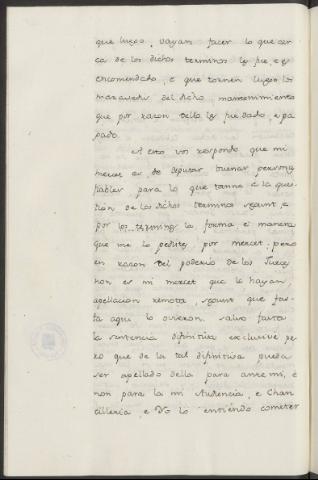 que luego, vayan facer lo que cer
ca de los dichos terminos les fue, e es
encomendado, e que tornen luego los
maravedis del dicho, mantenimiento
que por razon dello les fue dado, e pa
gado.
A esto vos respondo que mi
merced es de deputar buenas personas
fiables para lo que tanne a la ques-
tión de los dichos terminos segunt, e
por los terminos la forma e manera
que me lo pedistes por merced: pero
en razon del poderio de los Jueces
non es mi merced que lo hayan,
apellacion remota, segunt que fas-
ta aqui lo ovieron. salvo fasta
la sentencia difinitiva exclusive pe
ro que de la tal difinitiva pueda
ser apellado della para ante mi, e
non para la mi Audiencia, e Chan
cilleria, e Yo lo entiendo cometer